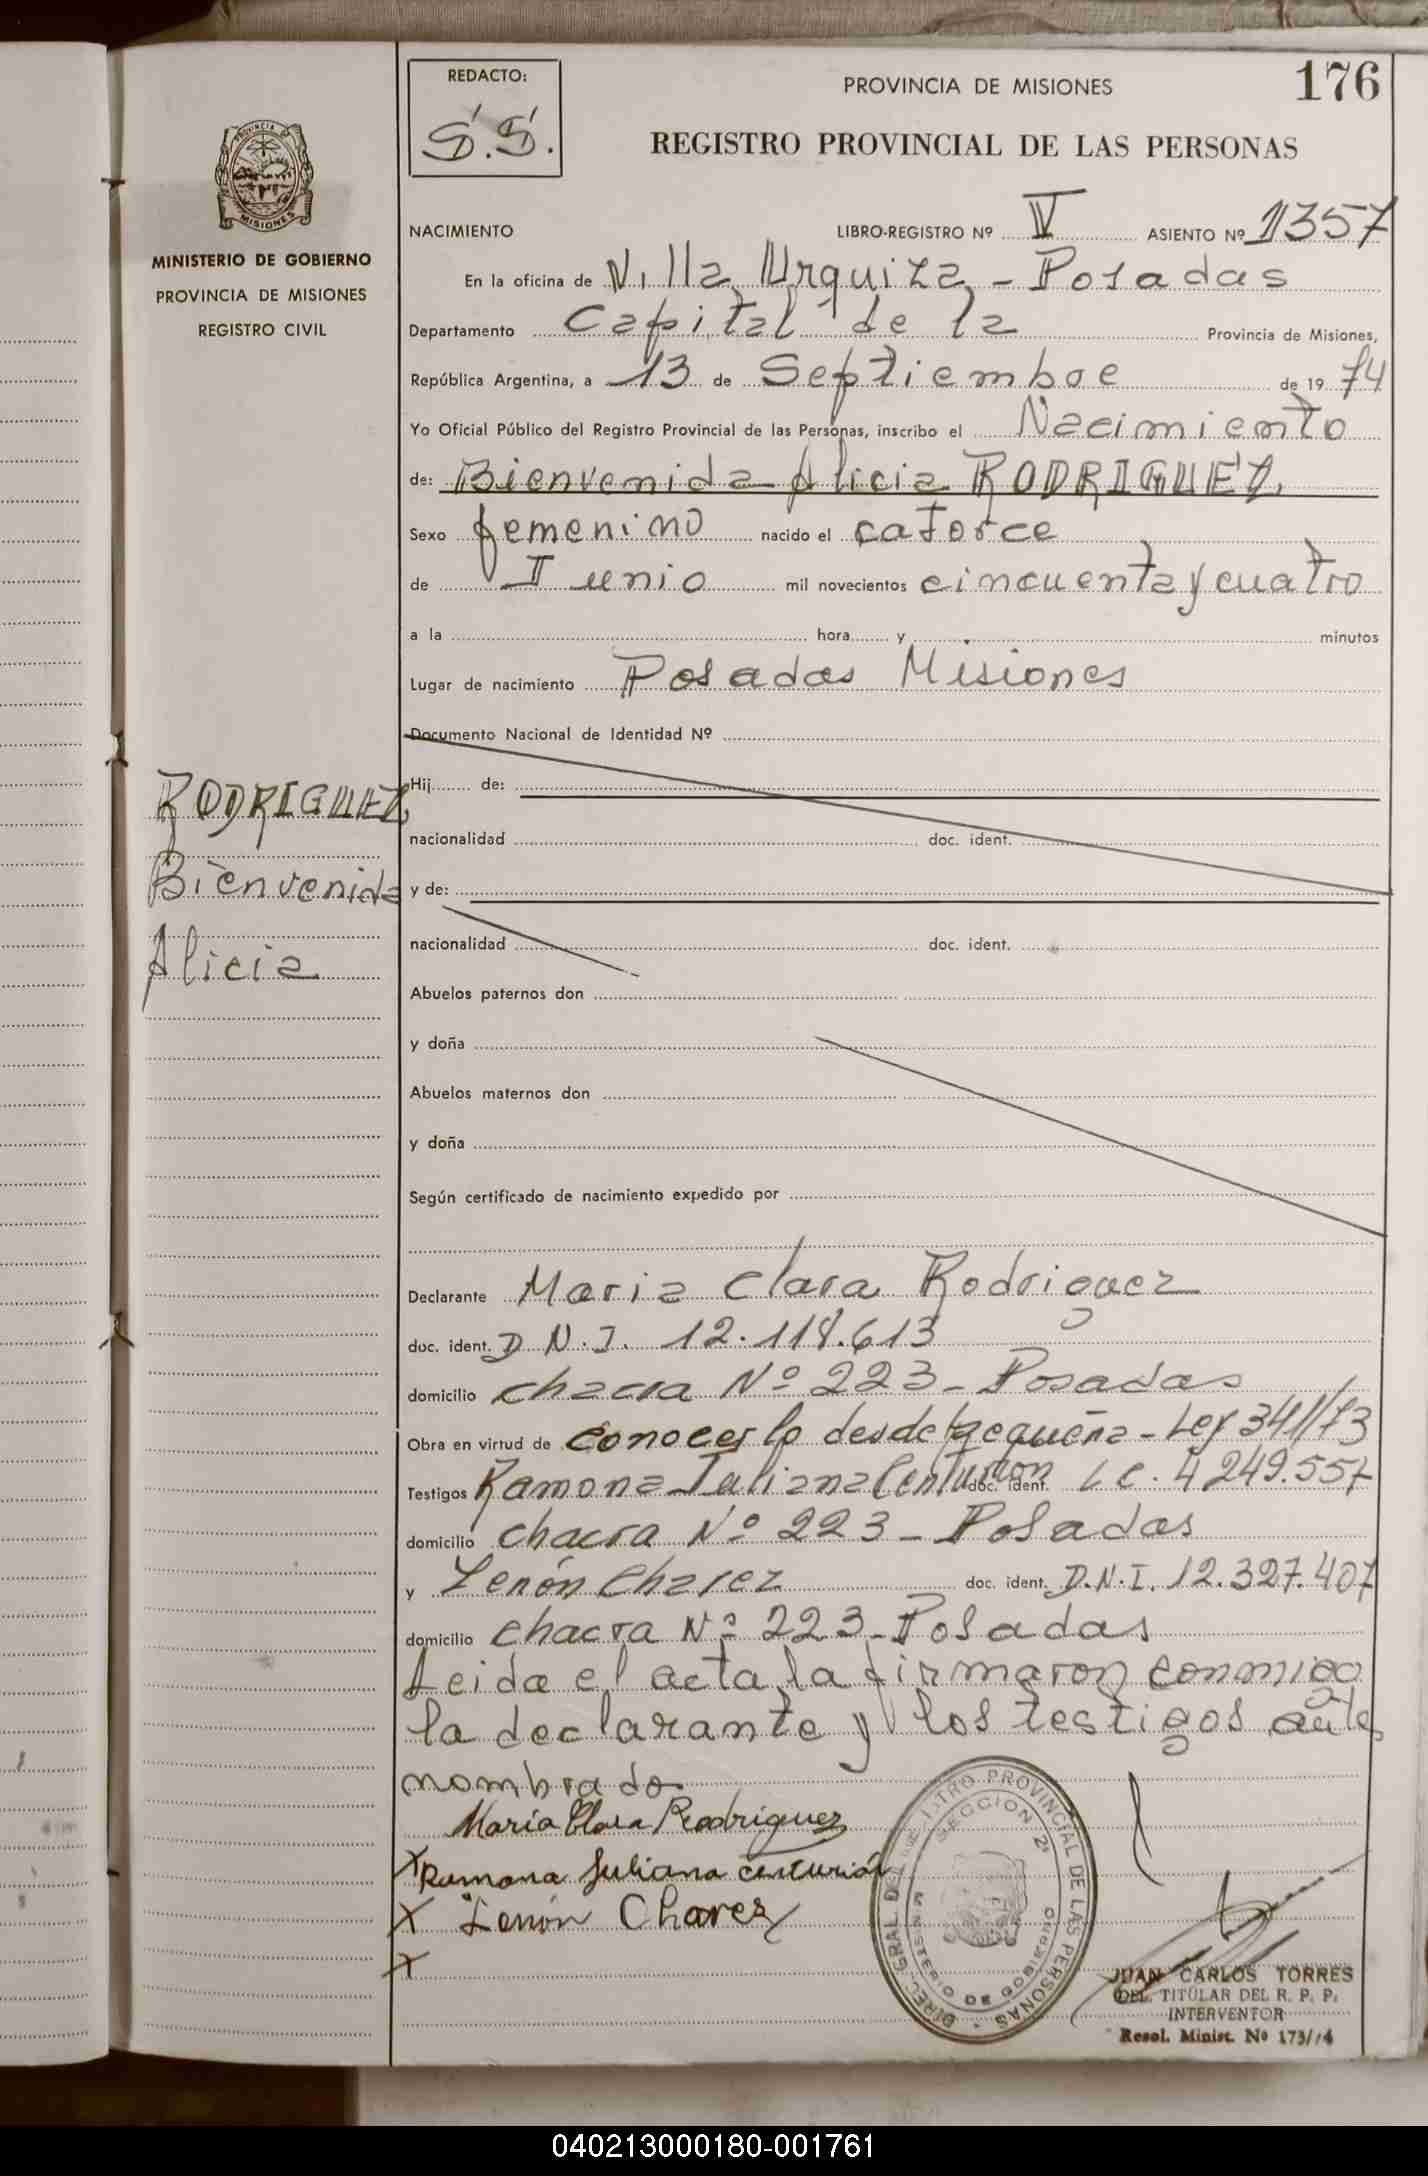 REDACTO:
S.S.
PROVINCIA DE MISIONES
176
REGISTRO PROVINCIAL DE LAS PERSONAS
MISIONES
MINISTERIO DE GOBIERNO
PROVINCIA DE MISIONES
REGISTRO CIVIL
NACIMIENTO LIBRO-REGISTRO Nº IV ASIENTO Nº 1357
En la oficina de Villa Urquiza - Posadas
Departamento Capital de la Provincia de Misiones,
República Argentina, a 13 de Septiembre de 19 74
Yo Oficial Público del Registro Provincial de las Personas, inscribo el Nacimiento
de: Bienvenida Alicia RODRIGUEZ
Sexo femenino nacido el catorce
de Junio mil novecientos cincuenta y cuatro
a la hora y minutos
Lugar de nacimiento Posadas Misiones
Documento Nacional de Identidad Nº
Hij de:
nacionalidad doc. ident.
y de:
nacionalidad doc. ident.
Abuelos paternos don
y doña
Abuelos maternos don
y doña
Según certificado de nacimiento expedido por
RODRIGUEZ
Bienvenida
Alicia
Declarante Maria Clara Rodriguez
doc. ident. D N.I. 12.118.613
domicilio chacra Nº 223 - Posadas
Obra en virtud de conocerlo desde pequeña - Ley 3411/73
Testigos Ramona Juliana Centurion doc. ident. L C. 4 249.557
domicilio chacra Nº 223 - Posadas
y Zenón Charez doc. ident. D.N.I. 12.327.407
domicilio chacra Nº 223 - Posadas
Leida el acta, la firmaron conmigo
la declarante y los testigos antes
nombrado
Maria Clara Rodriguez
X Ramona Juliana centurión
X Zenón Charez
X
DIREC. GRAL. DEL REGISTRO PROVINCIAL DE LAS PERSONAS
SECCION 2ª
MINISTERIO DE GOBIERNO
JUAN CARLOS TORRES
DEL. TITULAR DEL R. P. P.
INTERVENTOR
Resol. Minist. Nº 173/74
040213000180-001761